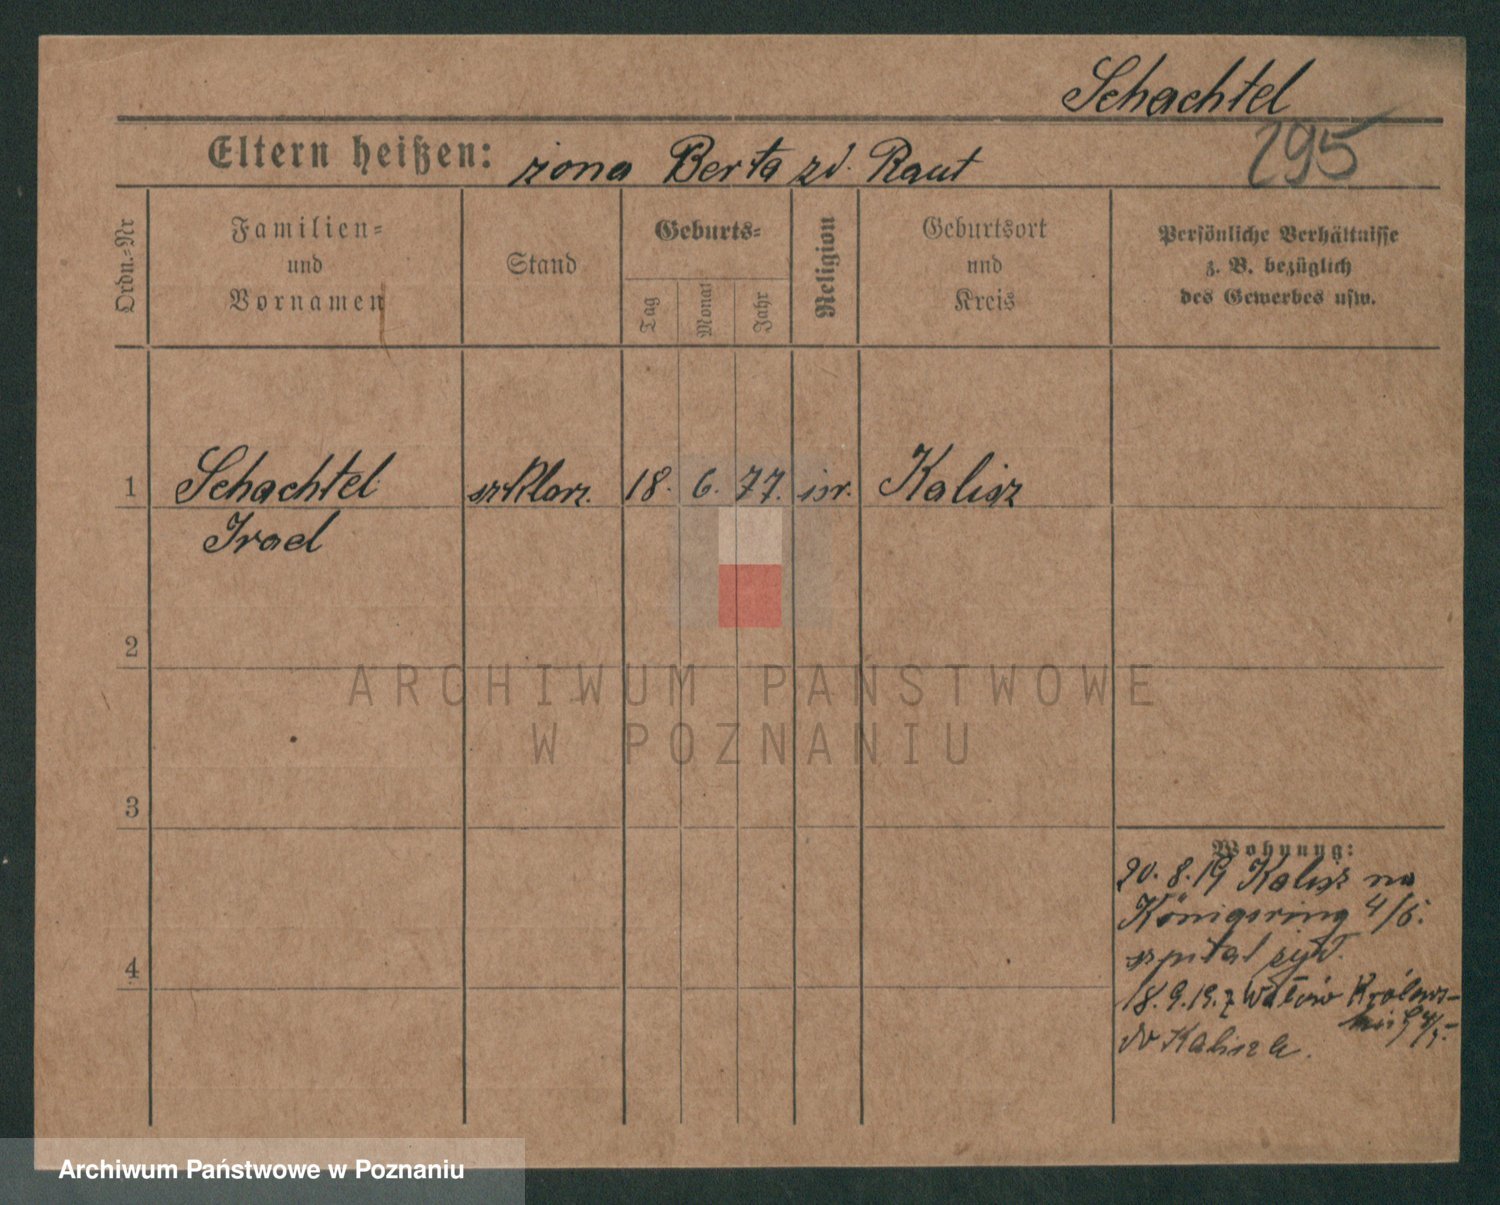 Schachtel
295
Eltern heißen: żona Berta zd. Raut
Ordn.-Nr
Familien-
und
Vornamen
Stand
Geburts-
Tag
Monat
Jahr
Religion
Geburtsort
und
Kreis
Persönliche Verhältnisse
z. B. bezüglich
des Gewerbes usw.
1 Schachtel szklarz. 18. 6. 77. izr. Kalisz
Israel
2
3
4
Wohnung:
20. 8. 19 Kalisz na
Königsring 4/5.
szpital żyd.
18. 9. 19. z Wałów
do Kalisza.
ARCHIWUM PAŃSTWOWE
W POZNANIU
Archiwum Państwowe w Poznaniu